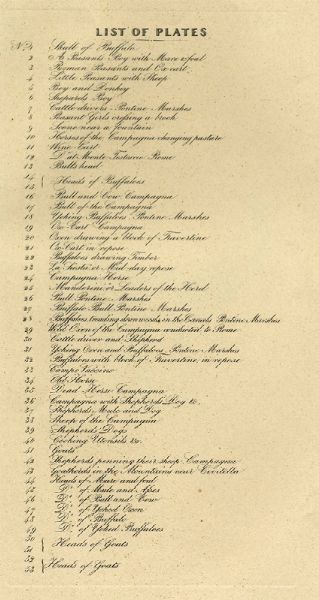 LIST OF PLATES
No. 1 Skull of Buffalo
2 A Peasants Boy with Mare & foal
3 Roman Peasants and Ox cart
4 Little Peasants with Sheep
5 Boy and Donkey
6 Shepards Boy
7 Cattle drivers - Pontine Marshes
8 Peasant Girls crossing a brook
9 Scene near a fountain
10 Horses of the Campagna changing pasture
11 Wine Cart
12 D'al Monte Testacio Rome
13 Bulls head
14
15 { Heads of Buffaloes
16 Bull and Cow Campagna
17 Bull of the Campagna
18 Yoking Buffaloes Pontine Marshes
19 Ox-Cart Campagna
20 Oxen drawing a block of Travertine
21 Ox-Cart in repose
22 Buffaloes drawing Timber
23 La Siesta or Mid-day repose
24 Campagna Horse
25 Manderini or Leaders of the Herd
26 Bull Pontine Marshes
27 Buffalo Bull Pontine Marshes
28 Buffaloes treading down weeds in the Canals Pontine Marshes
29 Wild Oxen of the Campagna conducted to Rome
30 Cattle driver and Shepherd
31 Yoking Oxen and Buffaloes Pontine Marshes
32 Buffaloes with block of Travertine in repose
33 Campo Vaccino
34 Old Horse
35 Dead Horse Campagna
36 Campagna with Shepherds Dog &c.
37 Shepherds Mule and Dog
38 Sheep of the Campagna
39 Shepherds Dogs
40 Cooking Utensils &c.
41 Goats
42 Shepherds penning their sheep Campagna
43 Goatherds in the Mountains near Civitella
44 Heads of Mare and foal
45 Do. of Mule and Asses
46 Do. of Bull and Cow
47 Do. of Yoked Oxen
48 Do. of Buffalo
49 Do. of Yoked Buffaloes
50
51 { Heads of Goats
52
53 { Heads of Goats